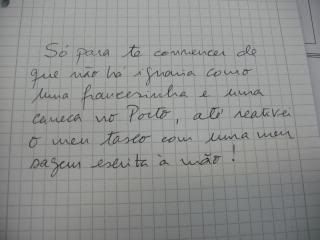 Só para te convencer de
que não há iguaria como
uma francesinha e uma
caneca no Porto, até reativei
o meu tasco com uma men
sagem escrita à mão!